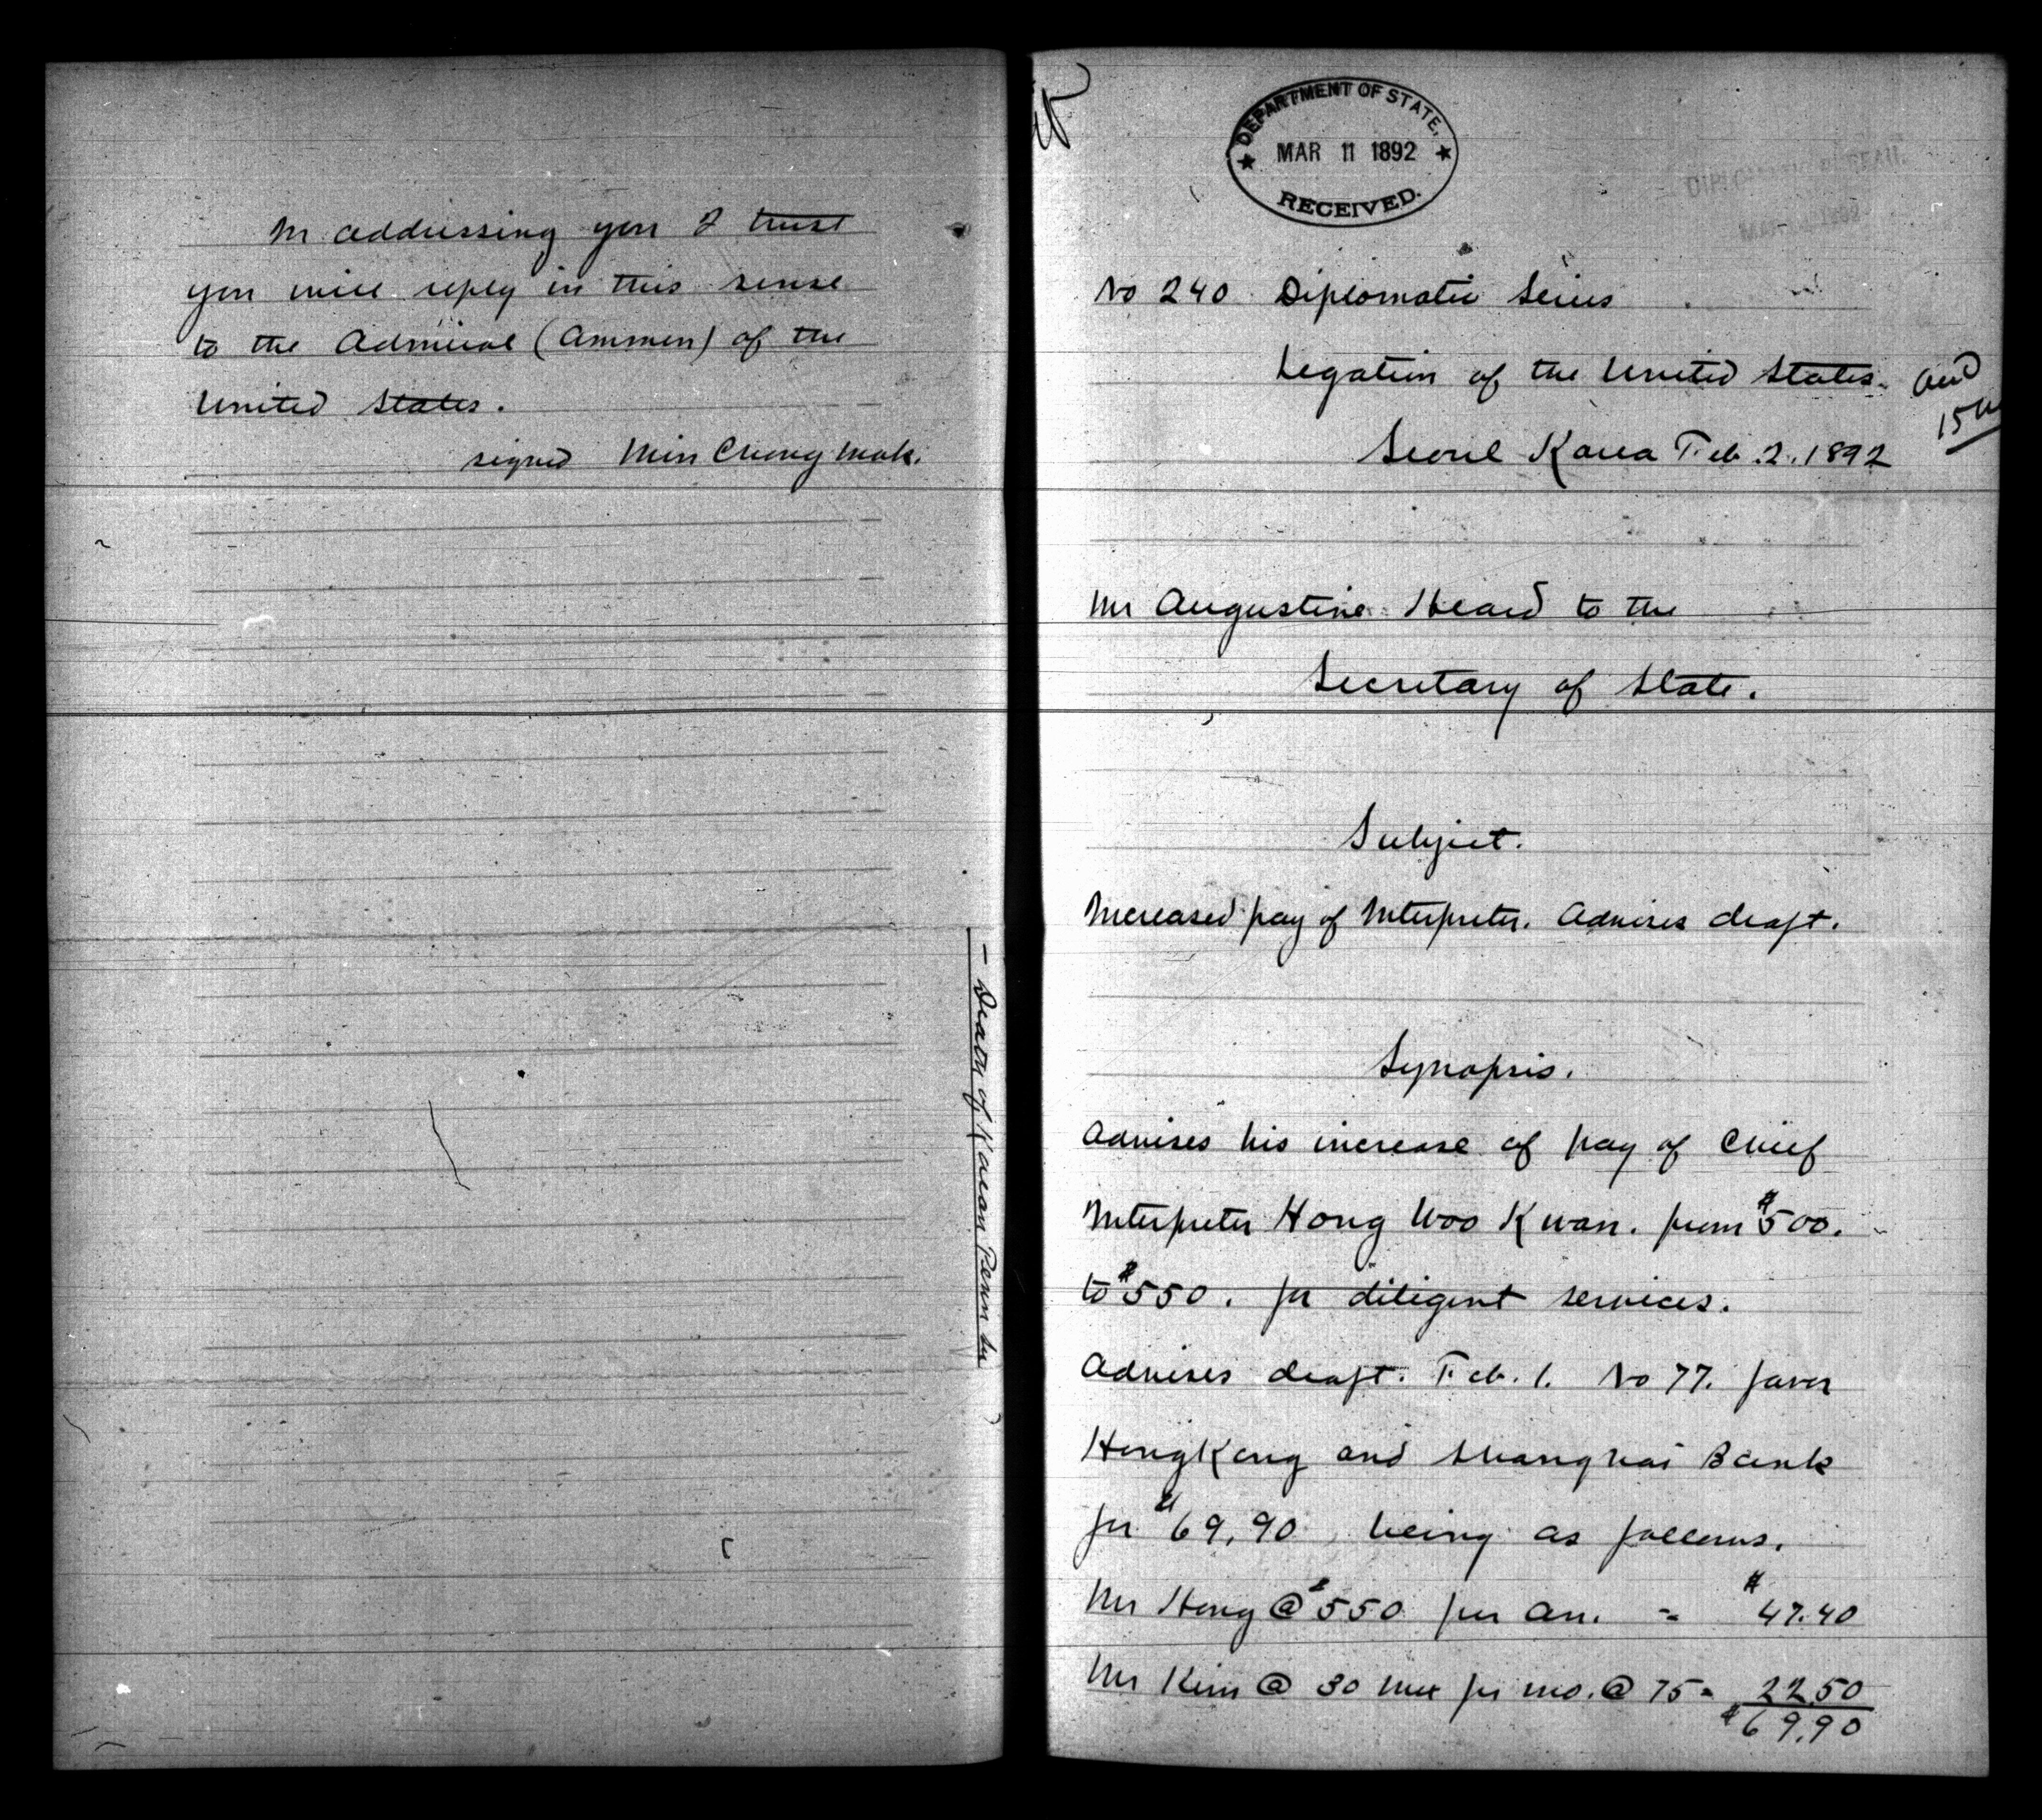 In addressing you I trust
you will reply in this sense
to the Admiral (Ammen) of the
United States.
signed Min Chong Mok.
- Death of Korean Penn in
DEPARTMENT OF STATE,
MAR 11 1892
RECEIVED.
No 240 Diplomatic Series
Legation of the United States.
Seoul Korea Feb. 2. 1892
Mr Augustine Heard to the
Secretary of State.
Subject.
Increased pay of Interpreter. Advises draft.
Synopsis.
Advises his increase of pay of Chief
Interpreter Hong Woo Kwan. from $500.
to $550. for diligent services.
Advises draft. Feb. 1. No 77. favor
HongKong and Shanghai Bank
for $69.90 being as follows.
Mr Hong @ $550 per an. = $47.40
Mr Kim @ 30 Mex per mo. @ 75 = 22.50
$69.90